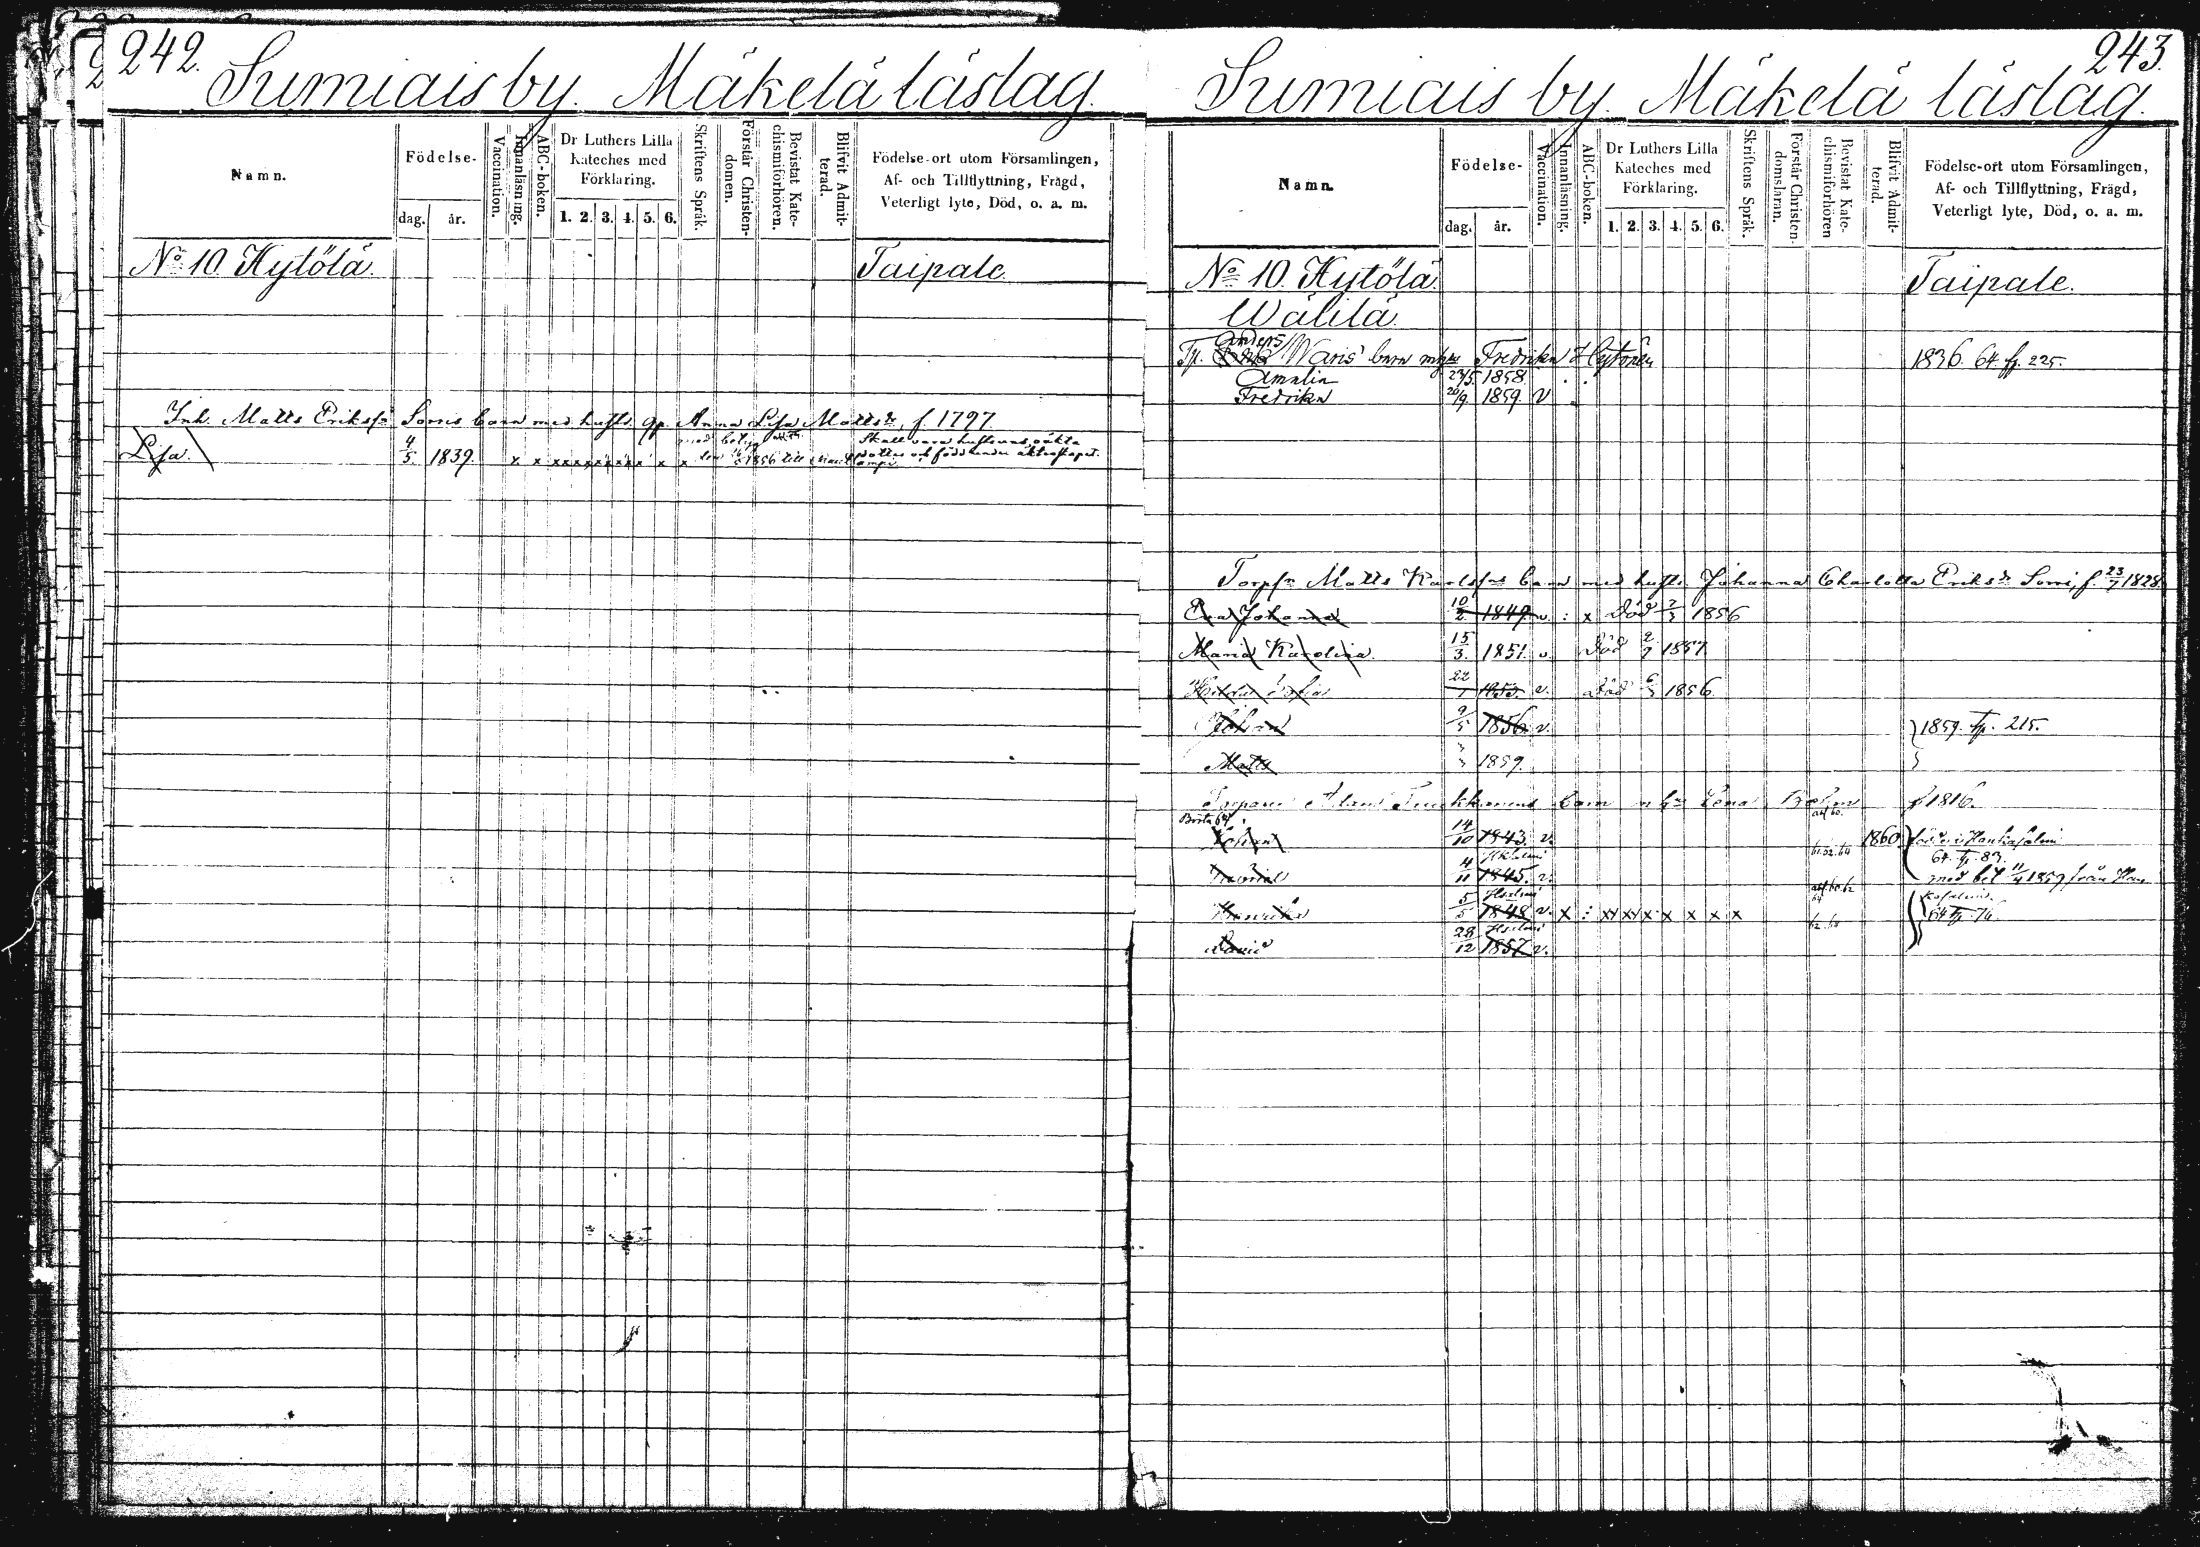 242.
Sumiais by. Mäkelä läslag.
Namn.
Födelse-
dag. år.
Vaccination.
Innanläsning.
ABC-boken.
Dr Luthers Lilla
Kateches med
Förklaring.
1. 2. 3. 4. 5. 6.
Skriftens Språk.
Förstår Christen-
domen.
Bevistat Kate-
chismiförhören.
Blifvit Admit-
terad.
Födelse-ort utom Församlingen,
Af- och Tillflyttning, Frägd,
Veterligt lyte, Död, o. a. m.
No 10 Kytölä. Taipale.
Inh. Matts Eriksſn Sorris barn med huſtr. gp. Anna Liſa Mattsdr, f. 1797.
Skall vara huſtruns oäkta
Liſa. 4/5 1839. x x x x x x x x x x x x x 1856 till
243.
Sumiais by. Mäkelä läslag.
Namn.
Födelse-
dag. år.
Vaccination.
Innanläsning.
ABC-boken.
Dr Luthers Lilla
Kateches med
Förklaring.
1. 2. 3. 4. 5. 6.
Skriftens Språk.
Förstår Christen-
domsläran.
Bevistat Kate-
chismiförhören
Blifvit Admit-
terad.
Födelse-ort utom Församlingen,
Af- och Tillflyttning, Frägd,
Veterligt lyte, Död, o. a. m.
No 10. Kytölä. Taipale.
Wälilä.
Anders
Tp. Waris' barn Fredrika Hytönen 1836. 64 fp. 225.
Amalia 23/5. 1858.
Fredrika 20/9. 1859. V
Torpſn Matts Karlsſns barn med huſtr. Johanna Charlotta Eriksdr Sorri, f. 23/7 1828
Eva Johanna 10/2 1849. v. : x Död 1856
Maria Karolina 15/3. 1851. v. Död 2/7 1857
Sofia 22/1 1853. v. Död 1856
Johan 9/5 1856. v. } 1859. fp. 215.
Matts 1859.
Adam barn Lena f 1816.
Johan 14/10 1843. v. 1860
64. fp. 83.
4/11 1845. v. med bet. 11/4 1859 från
Henrika 5/5 1848 v. x : xx xx x x x x x 64 fp. 76
David 28/12 1857 v.